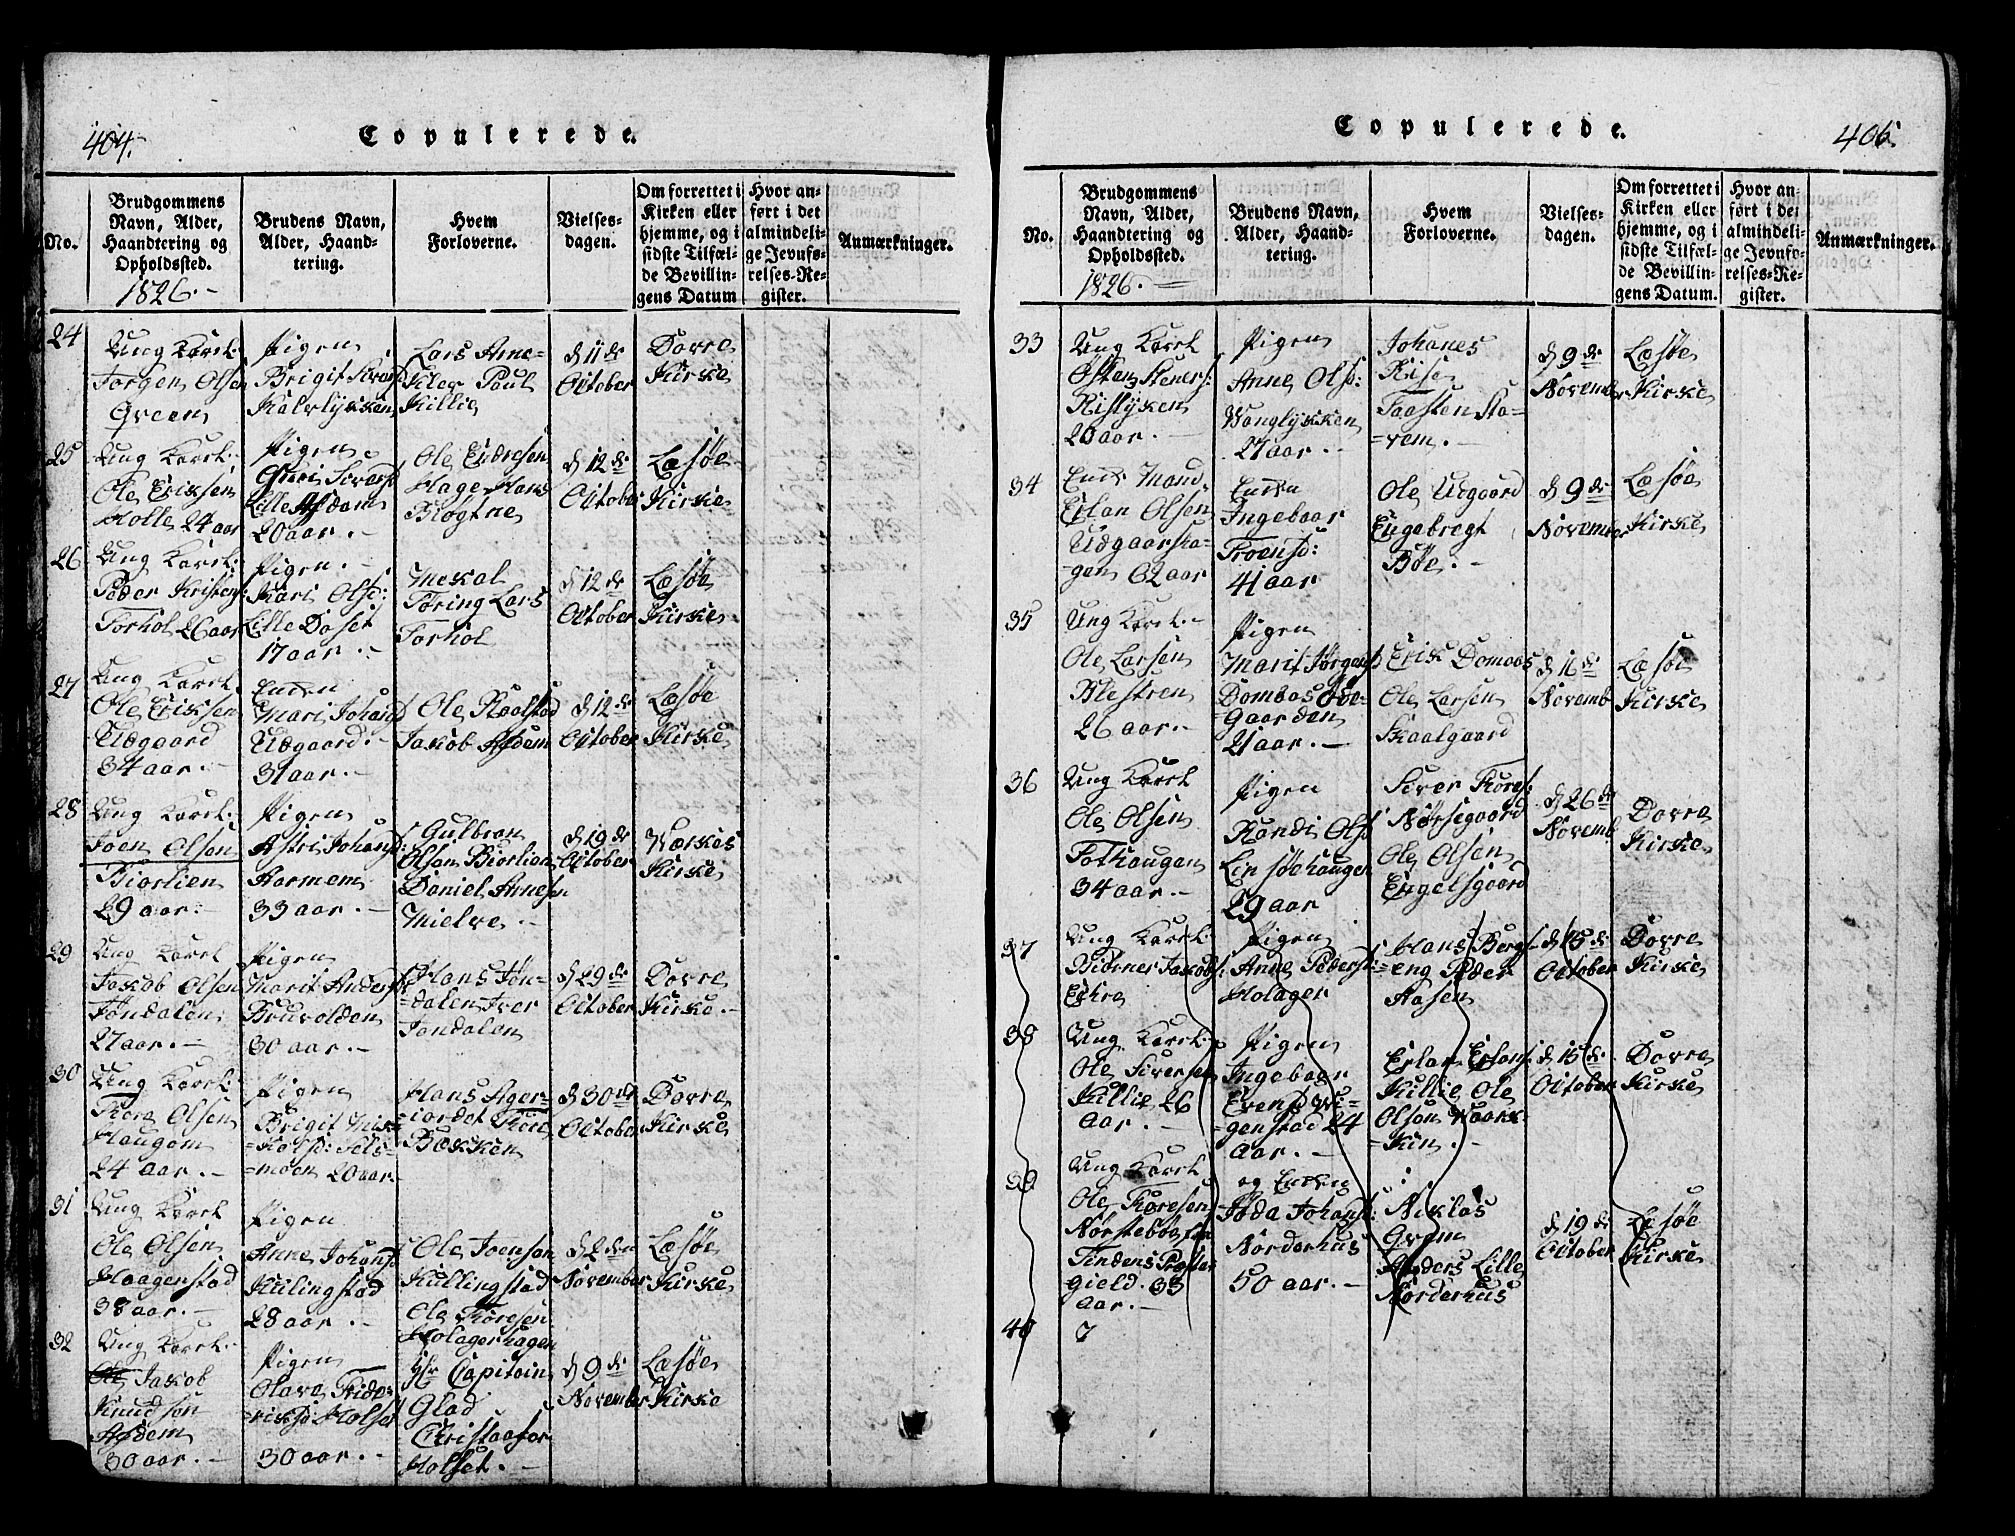 404.
Copulerede.
No.
Brudgommens
Navn, Alder,
Haandtering og
Opholdssted.
1826.
Brudens Navn,
Alder, Haand-
tering.
Hvem
Forloverne.
Vielses-
dagen.
Om forrettet i
Kirken eller
hjemme, og i
sidste Tilfæl-
de Bevillin-
gens Datum
Hvor an-
ført i det
almindeli-
ge Jevnfø-
relses-Re-
gister.
Anmærkninger.
24
Ung Karl.
Jørgen Olsen
Green
Pigen
Brigit Sivers
Kalvlykken
Lars Arne-
Kleg Poul
Killie
d 11 de
October
Dovre
Kirke
25
Ung Karl.
Ole Eriksen
Holle 24 aar
Pigen
Sivers
Lille Asdam
20 aar.
Ole Endresen
Hage Hans
Bløgtne
d 12 de
October
Læsøe
Kirke
26
Ung Karl.
Peder Kristens:
Forhol 26 aar
Pigen.
Kari Olsd:
Lille Doset
17 aar.
Mekal
Føring Lars
Forhol
d 12 de
October
Læsøe
Kirke
27
Ung Karl.
Ole Eriksen
Udgaard
34 aar.
Enken
Mari Johansd
Udgaard.
31 aar.
Ole Raalstad
Jakob Asdem
d 12 de
October
Læsøe
Kirke
28
Ung Karl.
Joen Olsen
Biorlien
29 aar.
Pigen
Astri Johansd:
Aarmem
33 aar.
Gulbran
Olsen Biorlien
Daniel Arnesen
Mielve.
d 19 de
October
Værkes
Kirke
29
Ung Karl
Jakob Olsen
Jøndalen
27 aar.
Pigen
Marit Andersd
Bruvolden
30 aar.
Hans Jøn-
=dalen Iver
Jøndalen
d 29 de
October
Dovre
Kirke.
30
Ung Karl.
Tore Olsen
Haugom
24 aar.
Pigen
Brigit Mik-
=kelsd: Sels-
=moen 20 aar.
Hans Ager-
=iordet Tore
Bækken
d 30 de
October
Dovre
Kirke
31
Ung Karl
Ole Olsen
Haagenstad
38 aar.
Pigen
Anne Johansd
Kulingstad
28 aar.
Ole Joensen
Kullingstad
Ole Toresen
Holagerhagen
d 2 den
November
Læsøe
Kirke
32
Ung Karl.
Jakob
Knudsen
Asdem
30 aar.
Pigen
Olava Fride-
=riksd: Holset
30 aar.
Hr Capitain
Glad
Christaafer
Holset.
d 9 de
November
Læsøe
Kirke
Copulerede.
405.
No.
Brudgommens
Navn, Alder,
Haandtering og
Opholdssted.
1826.
Brudens Navn,
Alder, Haand-
tering.
Hvem
Forloverne.
Vielses-
dagen.
Om forrettet i
Kirken eller
hjemme, og i
sidste Tilfæl-
de Bevillin-
gens Datum.
Hvor an-
ført i det
almindeli-
ge Jevnfø-
relses-Re-
gister.
Anmærkninger.
33
Ung Karl
Østen Steners:
Rislyken
20 aar.
Pigen
Anne Olsd:
Vanglykken
27 aar.
Johanes
Rise
Taasten Sta-
=vem.
d 9 de
November
Læsøe
Kirke
34
Enke Mand
Erlan Olsen
Udgaarsha-
=gen 62 aar
Enken
Ingeboar
Troensd:
41 aar
Ole Udgaard
Engebregt
Bøe.
d 9 de
November
Læsøe
Kirke
35
Ung Karl.
Ole Larsen
Blestren
26 aar.
Pigen
Marit Jørgensd
Dombas Øde-
=gaarden
21 aar.
Erik Domaas
Ole Larsen
Skaalgaard
d 16 de
Novemb
Læsøe
Kirke
36
Ung Karl
Ole Olsen
Tofthaugen
34 aar.
Pigen
Randi Olsd
Linsøehaugen
29 aar
Siver Tores:
Nørsegaard
Ole Olsen
Engelsgaard
d 26 de
Novemb.
Dovre
Kirke
37
Ung Karl.
Biørner Jakobs:
Ekre
Pigen
Anne Pedersd:
Holager
Hans Berg-
=eng Peder
Aasen
d 15 de
October
Dovre
Kirke
38
Ung Karl.
Ole Siversen
Killie 26
aar.
Pigen
Ingeboer
Evensd Wi-
=genstad 24
aar.
Erlan Erlans:
Killie Ole
Olsen Waark-
=kin.
d 15 de
October
Dovre
Kirke
39
Ung Karl
Ole Toresen
Nørstebø
Tindens Præste-
gield. 33
aar.
og Enken
Joda Johansd:
Norderhus
50 aar.
Niklas
Grøm
Anders Lille
Norderhus
d 19 de
October
Læsøe
Kirke
40